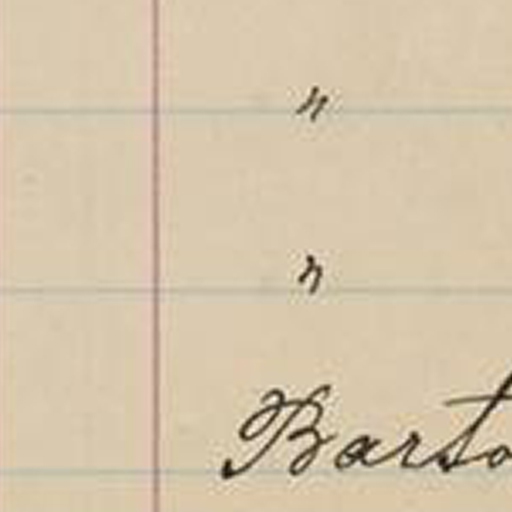 "
"
Barto